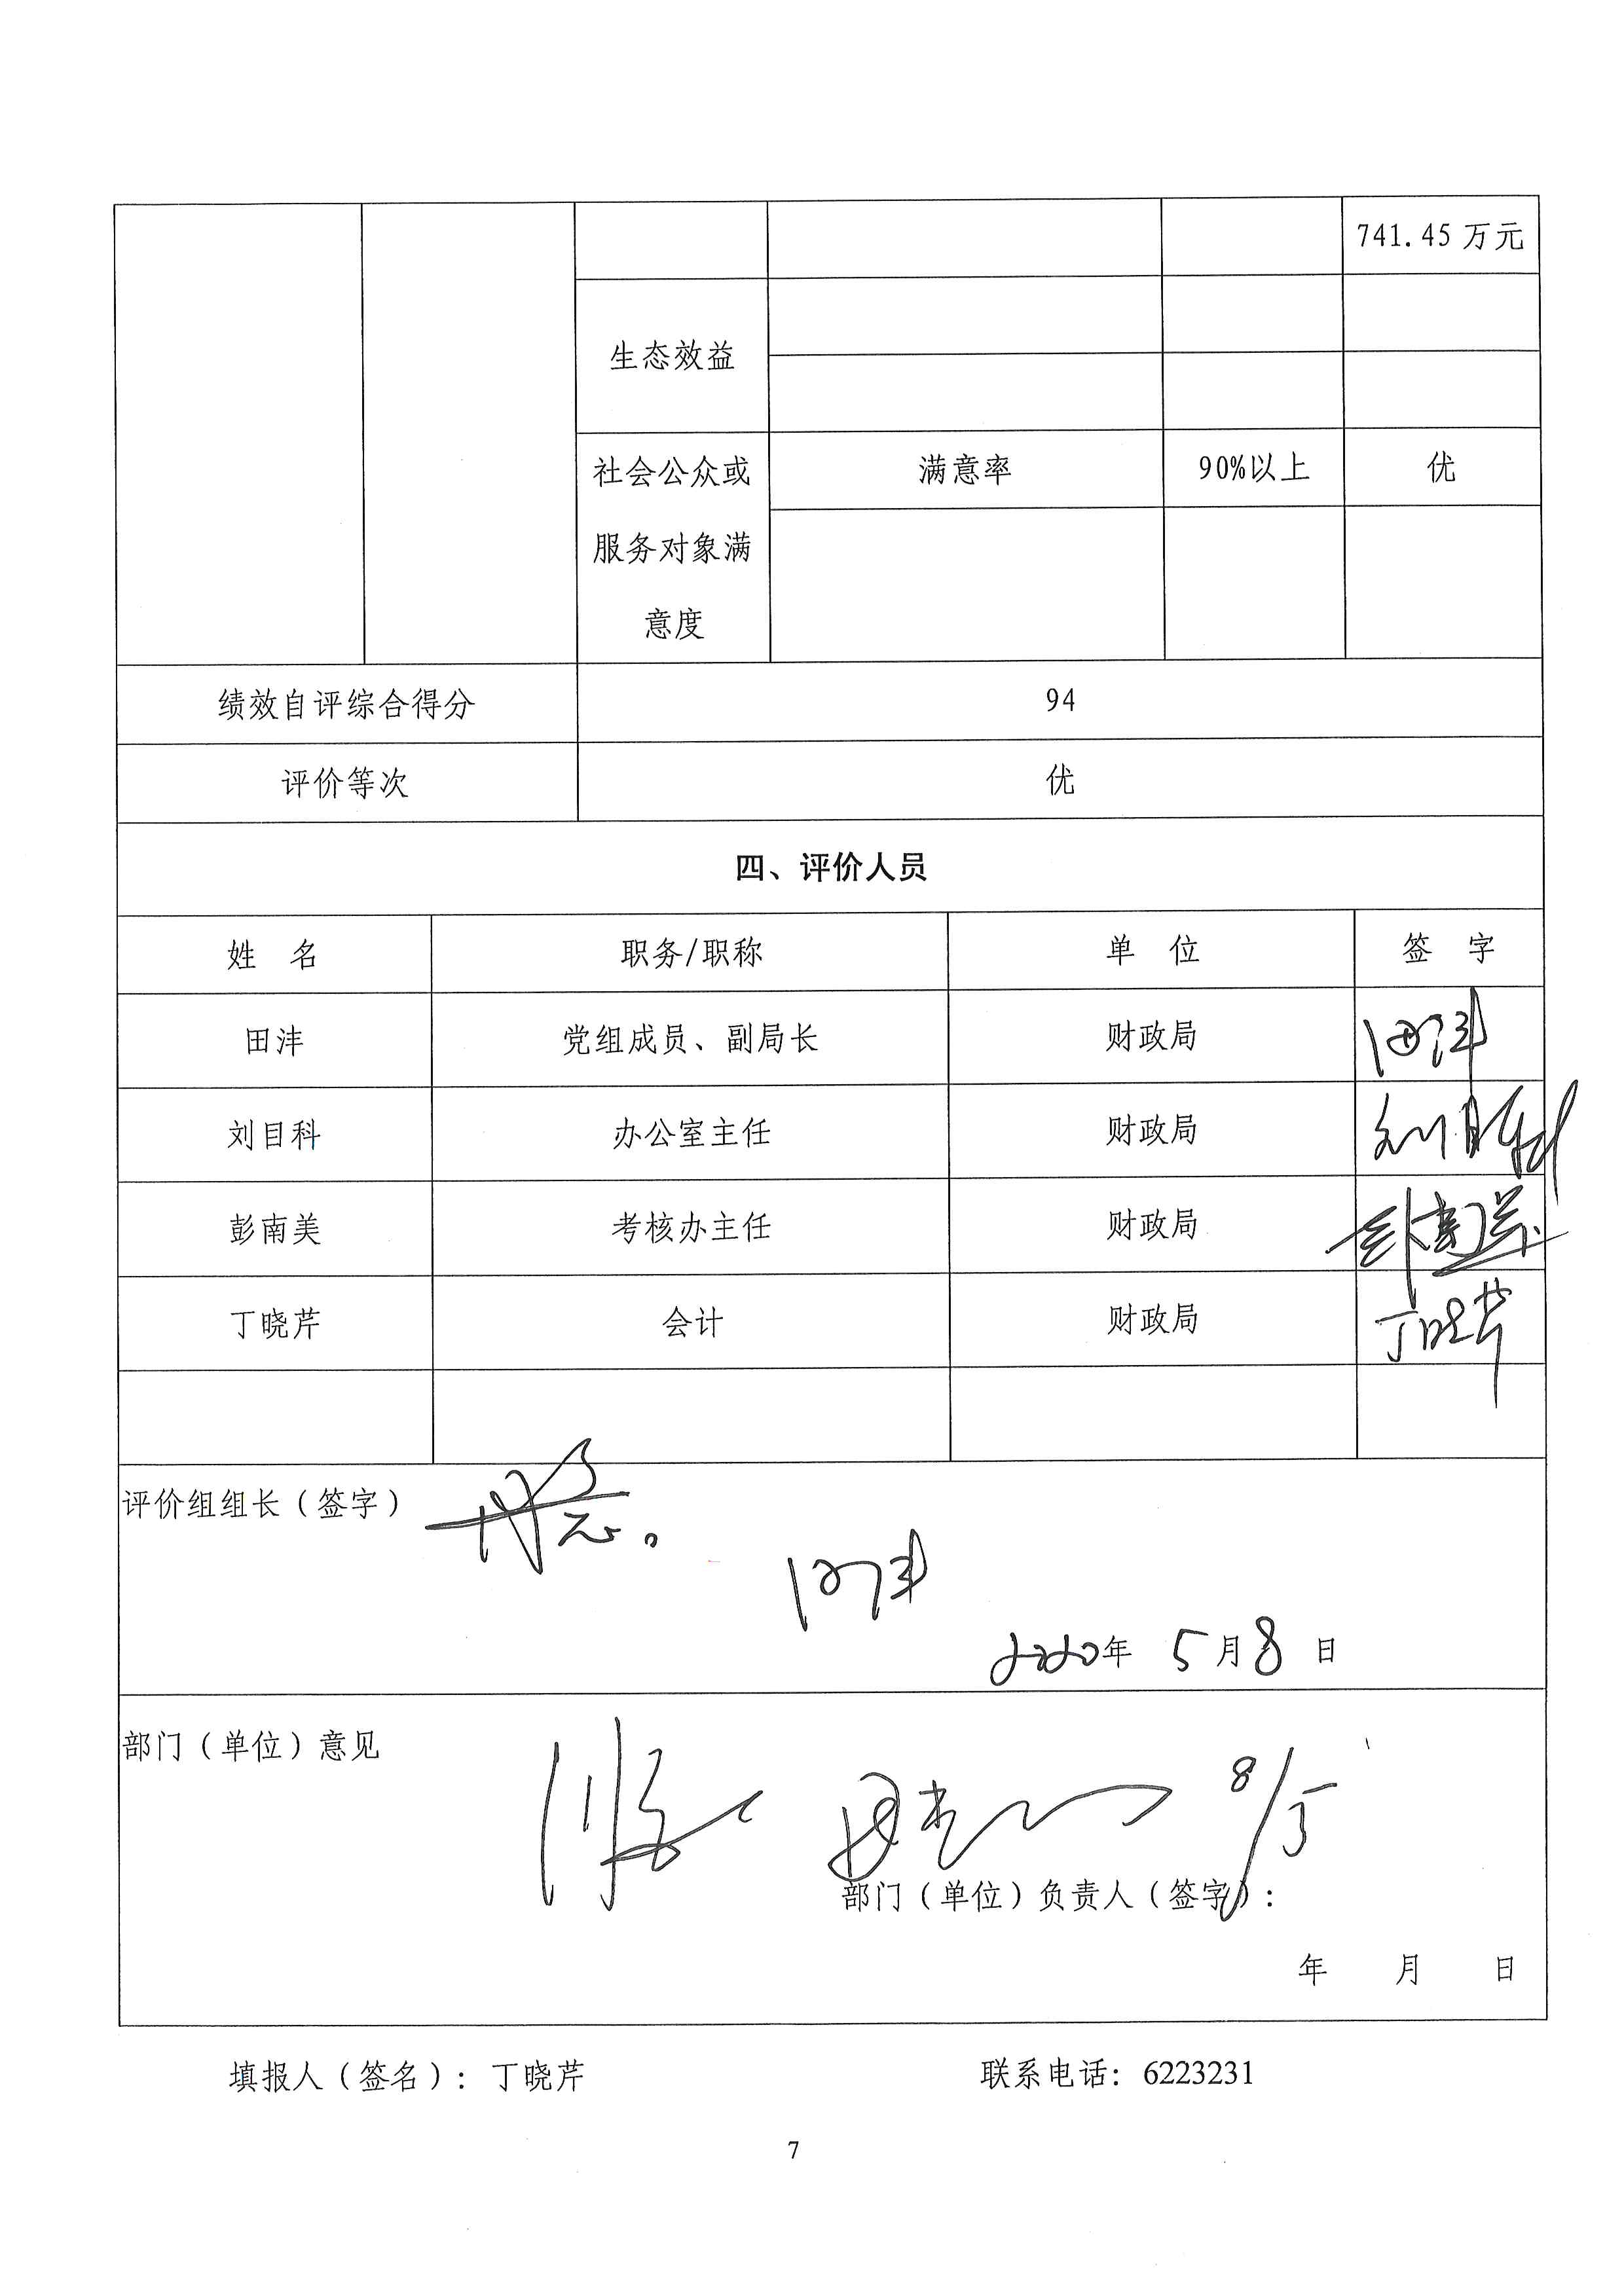 741.45 万元
生态效益
社会公众或 满意率 90%以上 优
服务对象满
意度
绩效自评综合得分 94
评价等次 优
四、评价人员
姓 名 职务/职称 单 位 签 字
田沣 党组成员、副局长 财政局 田沣
刘目科 办公室主任 财政局 刘目科
彭南美 考核办主任 财政局 彭南美
丁晓芹 会计 财政局 丁晓芹
评价组组长（签字）
田沣
2020年 5月8日
部门（单位）意见
部门（单位）负责人（签字）：
年 月 日
填报人（签名）：丁晓芹 联系电话：6223231
7